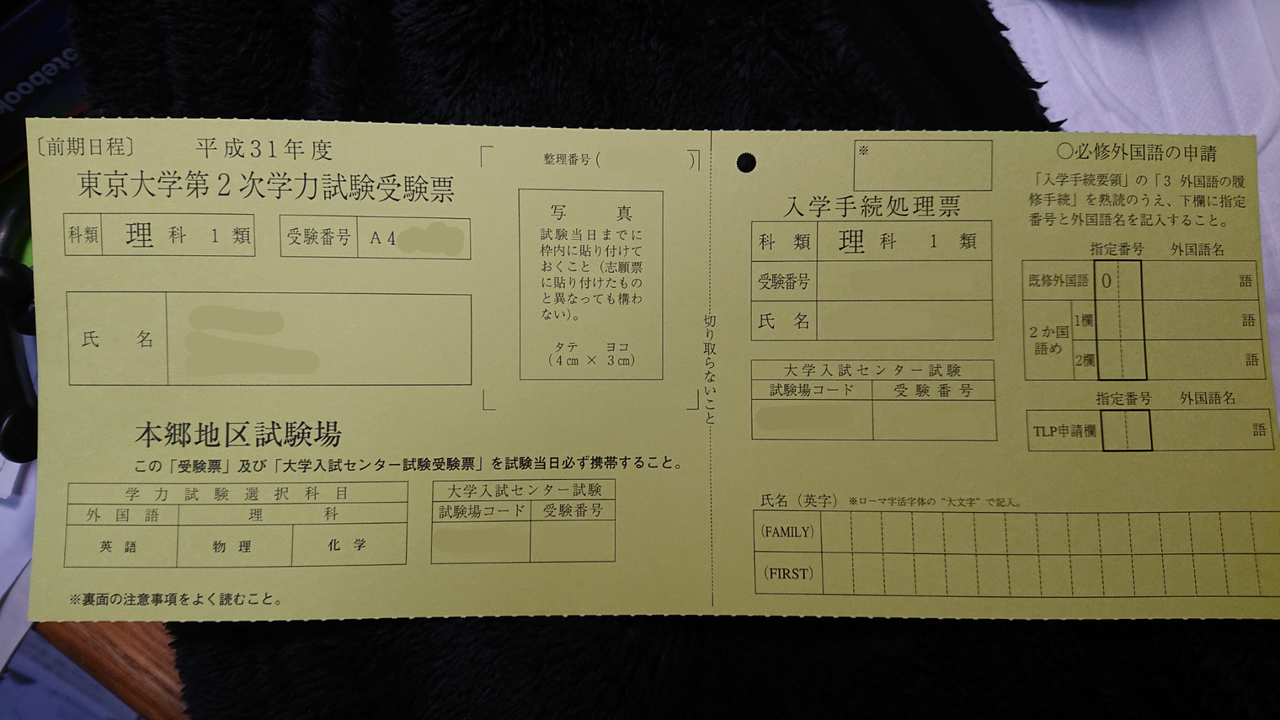 otebook
〔前期日程〕 平成31年度
東京大学第2次学力試験受験票
科類 理科 1 類
受験番号 A4
氏 名
整理番号( )
写 真
試験当日までに
枠内に貼り付けて
おくこと（志願票
に貼り付けたもの
と異なっても構わ
ない）。
タテ ヨコ
(4㎝ × 3㎝)
本郷地区試験場
この「受験票」及び「大学入試センター試験受験票」を試験当日必ず携帯すること。
学力試験選択科目
外国語 理科
英語 物理 化学
大学入試センター試験
試験場コード 受験番号
※裏面の注意事項をよく読むこと。
切り取らないこと
※
入学手続処理票
科 類 理科 1 類
受験番号
氏 名
大学入試センター試験
試験場コード 受験番号
○必修外国語の申請
「入学手続要領」の「3 外国語の履
修手続」を熟読のうえ、下欄に指定
番号と外国語名を記入すること。
指定番号 外国語名
既修外国語 0 語
2か国語め
1欄 語
2欄 語
指定番号 外国語名
TLP申請欄 語
氏名（英字） ※ローマ字活字体の“大文字”で記入。
(FAMILY)
(FIRST)